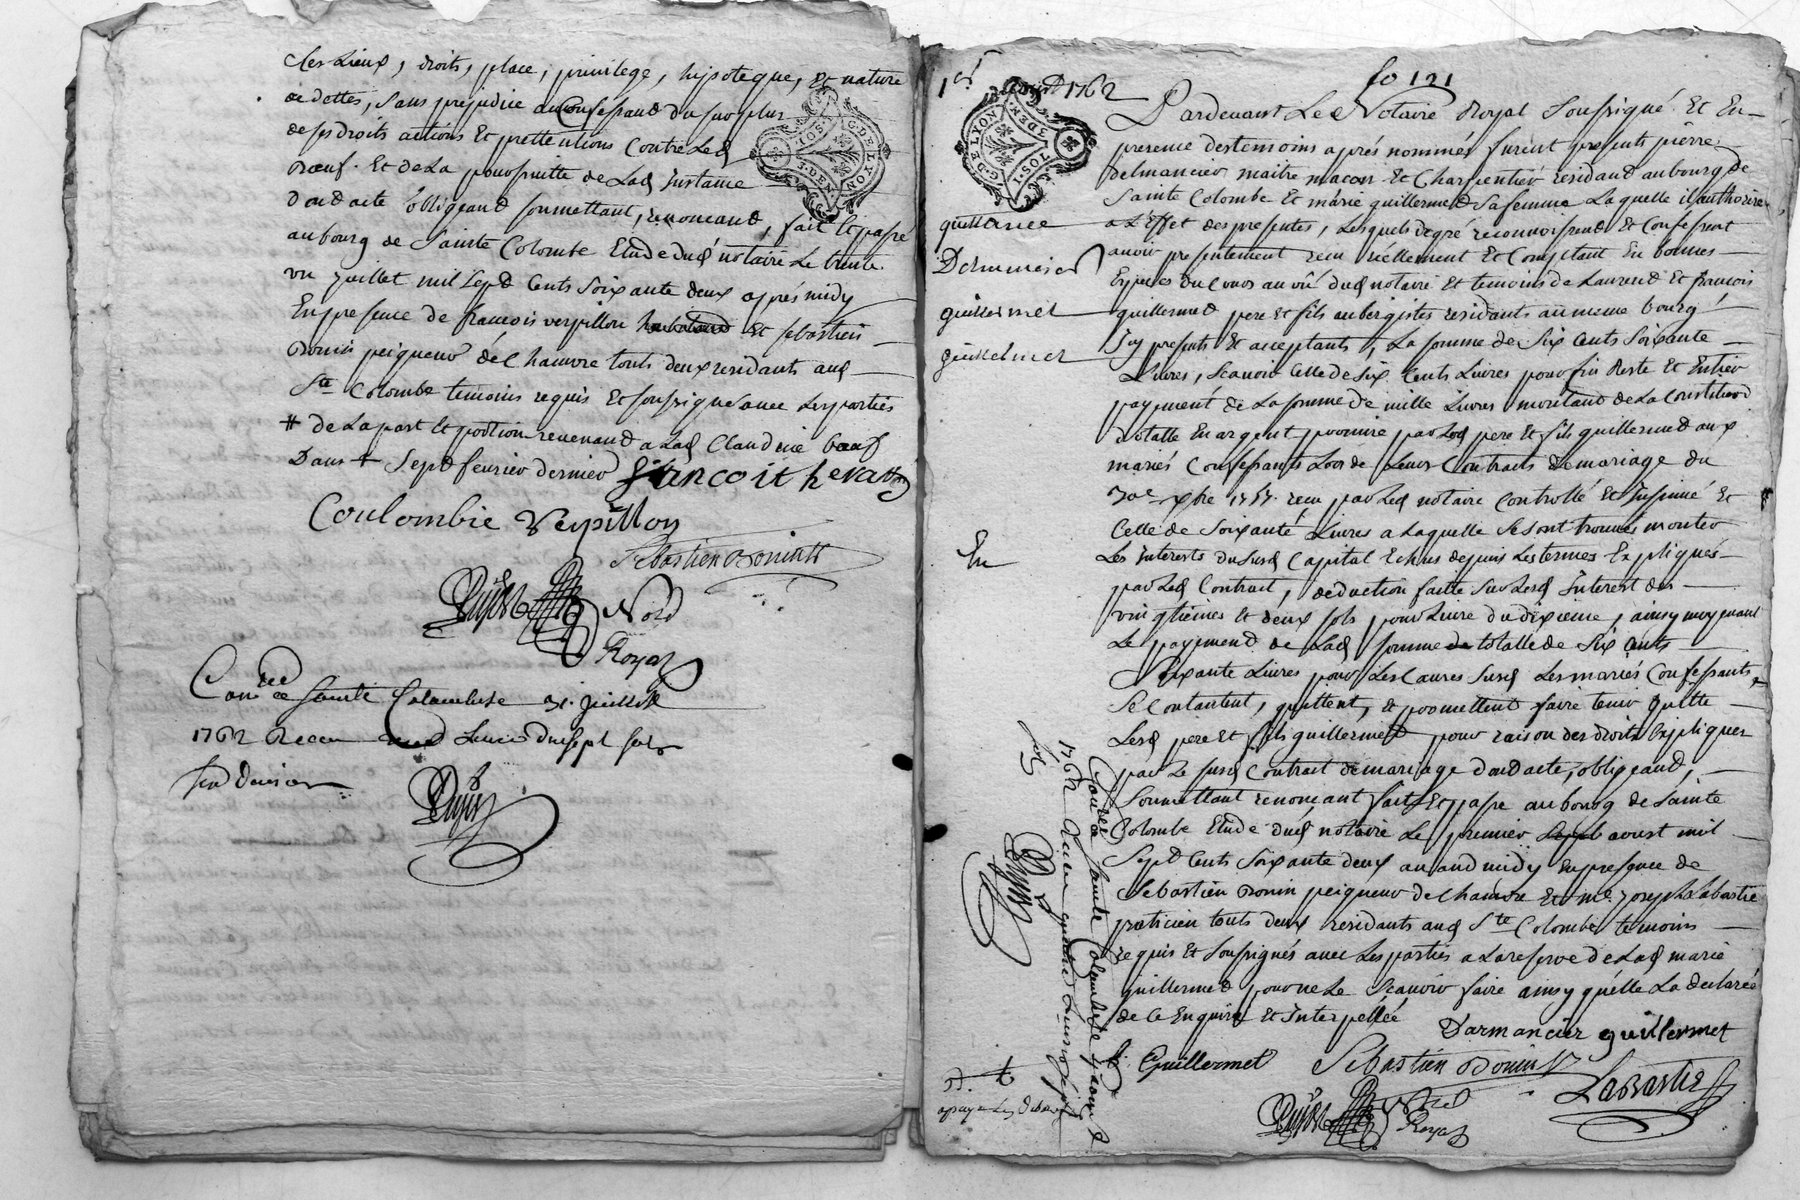 des Lieux, droits, place, privilege, hipoteque, et nature
de dettes, Sans prejudice au Confessand du surplus
de ses droits actions Et prettentions Contre Led
Bœuf. Et de La poursuitte de Lad Instance
dond acte obligeand soumettant, renonceand, fait Et passé
au bourg de Sainte Colombe Etude dud notaire Le trente
un Juillet mil Sept Cents Soixante deux aprés midy
En presence de francois verpillon Et sebastien
Bonin peigneur de Chanvre touts deux residants aud
Ste Colombe temoins requis Et soussignes avec Les parties
# de La part Et portion revenand a Lad Claudine bœuf
Dans + Sept fevrier dernier francoit
Coulombie Verpillon
Sebastien Bonin
Nore
Royal
a Sainte Colombe 31. juillet
1762 Recu sept sols
G. DE LYON
fo 121
1er aoust 1762
Pardevant Le Notaire Royal Soussigné Et En
presence des temoins aprés nommés furent presents pierre
maitre macon Et Charpentier residand au bourg de
Sainte Colombe Et marie guillermed sa femme Laquelle il authorize
quittance
a L'Effet des presentes, Lesquels de gré reconnoissend Et Confessent
avoir presentement recu réellement Et Comptant En bonnes
Especes du Cours au vû dud notaire Et temoins de Laurend Et francois
guillermet
guillermed pere Et fils aubergistes residants au meme bourg
guillermet
Icy presents Et acceptants, La somme de Six Cents Soixante
Livres, Scavoir Celle de Six Cents Livres pour fin Reste Et Entier
payement de La somme de mille Livres montant de La Constitution
dotalle En argent promise par Led pere Et fils guillermed aux
mariés Confessants Lors de Leur Contrat de mariage du
xbre recu par Led notaire Controllé Et Insinué Et
Celle de Soixante Livres a Laquelle Se sont trouvés monter
En
Les Interets du susd Capital Echus depuis Les termes Expliqués
par Led Contrat, deduction faitte sur Lesd Interest des
vingtiemes Et deux sols pour Livre du dixieme, ainsy moyenant
Le payement de Lad somme totalle de Six Cents
Soixante Livres pour Les Causes susd Les mariés Confessants
Se Contantent, quittent, et promettent faire tenir Quitte
Lesd pere Et fils guillermed pour raison des droits Expliques
par Le susd Contrat de mariage dond acte, obligeand,
Soumettant renoncant fait Et passé au bourg de Sainte
Colombe Etude dud notaire Le premier aoust mil
Sept Cents Soixante deux avand midy En presence de
Sebastien Bonin peigneur de Chanvre Et me Joseph Labastie
praticien touts deux residants aud Ste Colombe temoins
requis Et soussignés avec Les parties a La reserve de Lad marie
guillermed pour ne Le Scavoir faire ainsy qu'elle La declarée
de Ce Enquise Et Interpellée
Darmancier guillermet
Guillermet Sebastien Bonin
Labastie
Royal
a Sainte Colombe
1762 Recu quatre Livres sept
sols